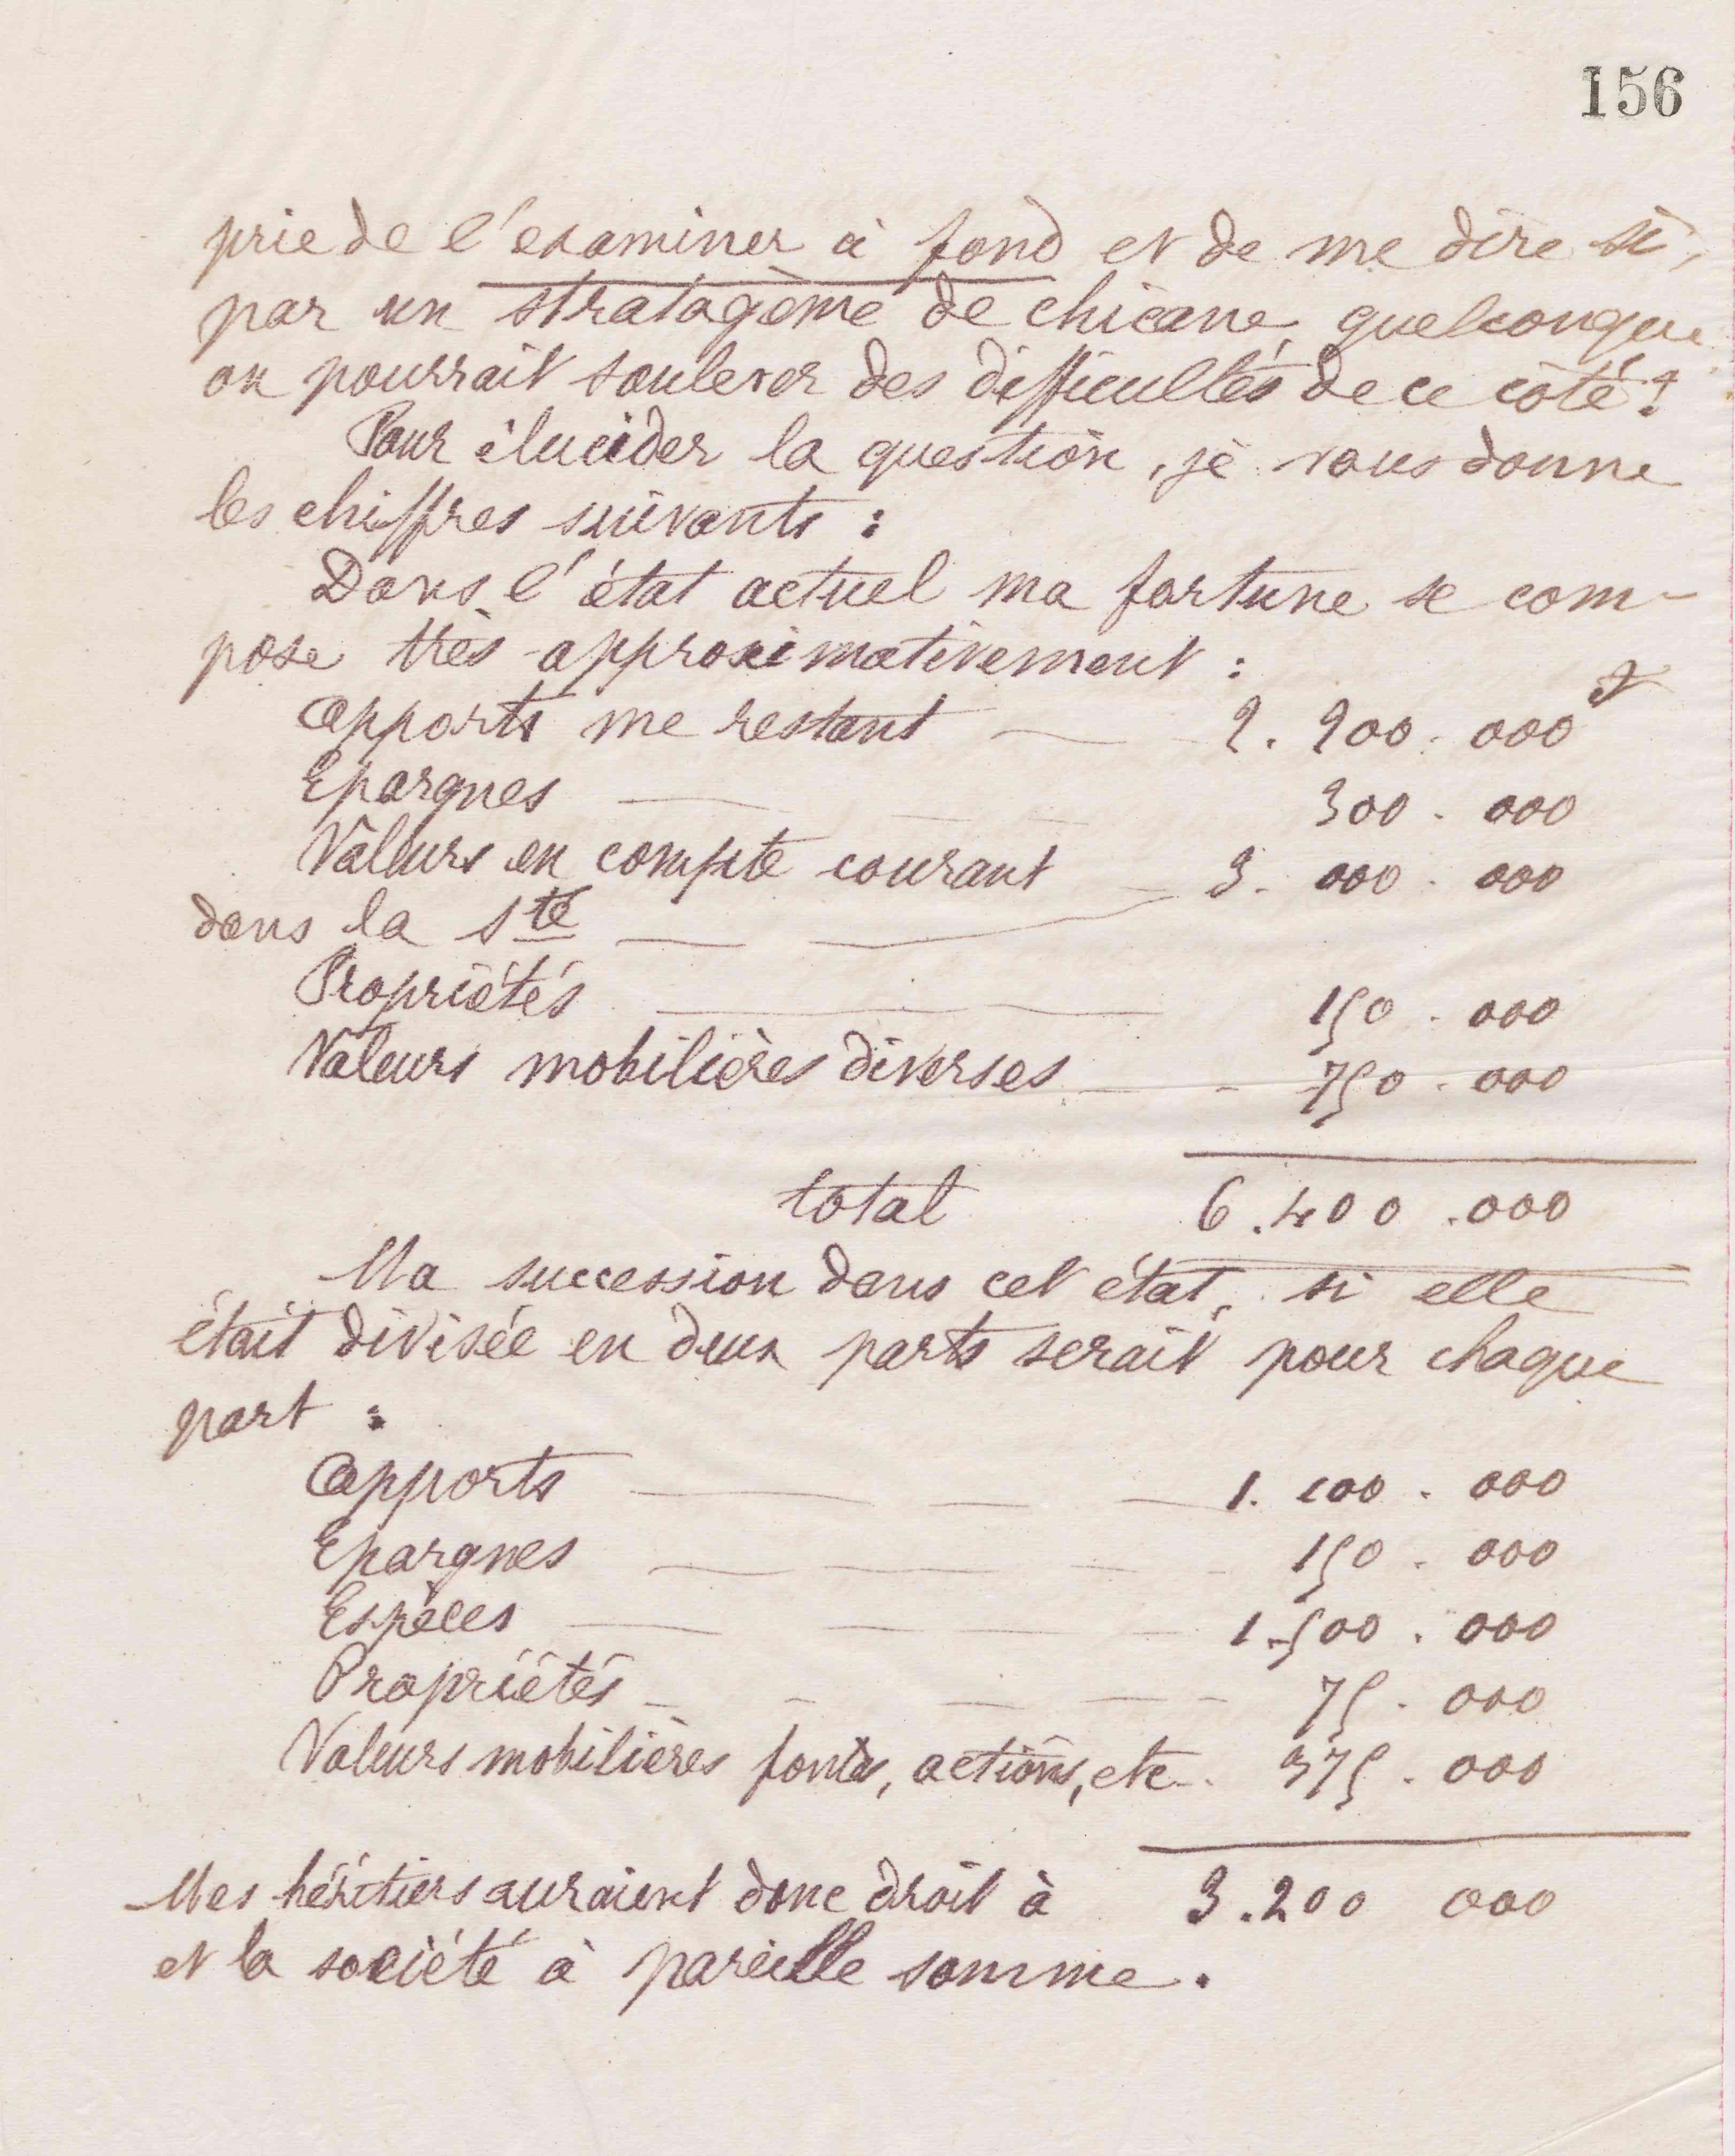 156
prie de l'examiner à fond et de me dire si,
par un stratagème de chicane quelconque
on pourrait soulever des difficultés de ce côté ?
Pour élucider la question, je vous donne
les chiffres suivants :
Dans l'état actuel ma fortune se com-
pose très approximativement :
Apports me restant 2.200.000 f
Epargnes 300.000
Valeurs en compte courant 3.000.000
dans la Sté
Propriétés 150.000
Valeurs mobilières diverses 750.000
total 6.400.000
Ma succession dans cet état, si elle
était divisée en deux parts serait pour chaque
part :
Apports 1.100.000
Epargnes 150.000
Espèces 1.500.000
Propriétés 75.000
Valeurs mobilières fonds, actions, etc 375.000
Mes héritiers auraient donc droit à 3.200 000
et la société à pareille somme.